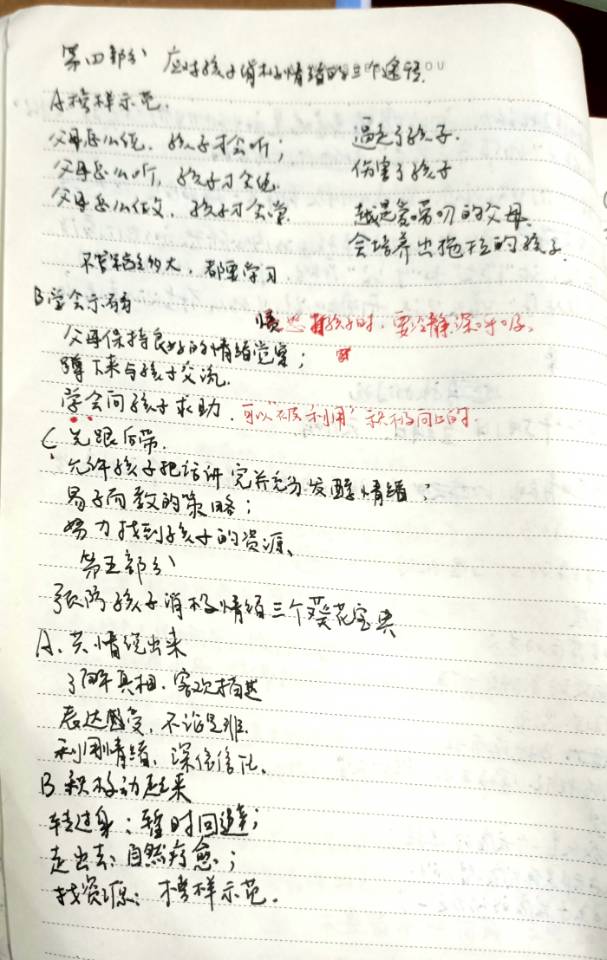 第四部分 应对孩子消极情绪的三个途径
A榜样示范.
父母怎么说, 孩子才会听;
逼走了孩子.
父母怎么听, 孩子才会说
伤害了孩子
父母怎么做, 孩子才会掌
越是爱唠叨的父母,
会培养出拖拉的孩子.
都要学习
B学会示弱
孩子时, 要冷静深呼吸。
父母保持良好的情绪觉察;
蹲下来与孩子交流.
学会向孩子求助, 可以“被利用”积极向上的.
C 先跟后带.
允许孩子把话讲完并充分发酵情绪;
易子而教的策略;
努力找到孩子的资源、
第五部分
预防孩子消极情绪三个葵花宝典
A、共情说出来
了解真相, 客观描述
表达感受, 不论是非.
利用情绪, 深度信任.
B 积极动起来
转过身: 暂时回避;
走出去: 自然疗愈;
找资源: 榜样示范.